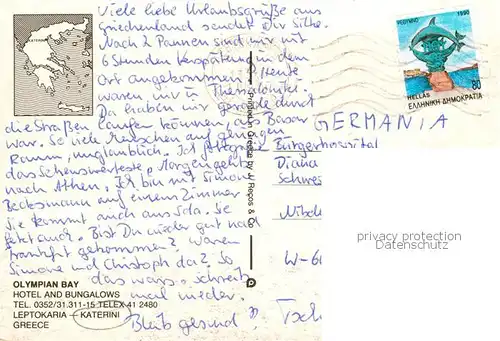 Viele liebe Urlaubsgrüße aus
Griechenland sendet Dir Silke.
Nach 2 Pannen sind wir mit
6 Stunden Verspäten in dem
Ort angekommen. Heute
waren wir in Thessaloniki.
Da haben wir gerade durch
die Straßen laufen können, als Basar
war. So viele Menschen auf
Raum, unglaublich. Ich
das Sehenswerteste. Morgen geht's
nach Athen. Ich bin mit Simone
Becksmann auf einem Zimmer
Sie kommt auch aus Sda. Sie
jetzt auch. Bist Du wieder gut nach
Frankfurt gekommen? Waren
Simone und Christoph da? So
das wars, schreib
mal wieder.
Bleib gesund!
KATERINI
OLYMPIAN BAY
HOTEL AND BUNGALOWS
TEL. 0352/31.311-15 TELEX 41 2480
LEPTOKARIA - KATERINI
GREECE
1990
80
HELLAS
ΕΛΛΗΝΙΚΗ ΔΗΜΟΚΡΑΤΙΑ
GERMANIA
Bürgerhospital
Diana
Schwes
Nibel
W-60
privacy protection
Datenschutz